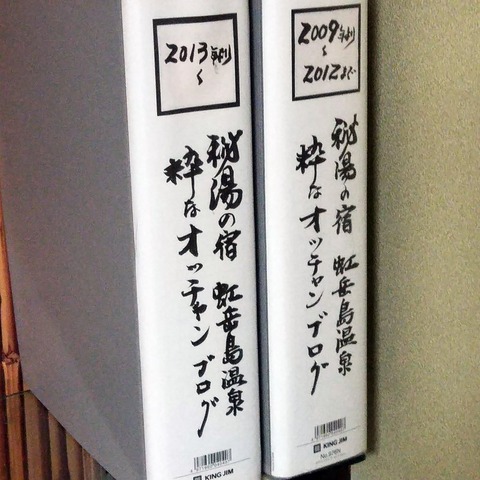 2013年より
〜
秘湯の宿 虹岳島温泉
粋なオッチャンブログ
KING JIM
2009年より
〜
2012まで
秘湯の宿 虹岳島温泉
粋なオッチャンブログ
KING JIM